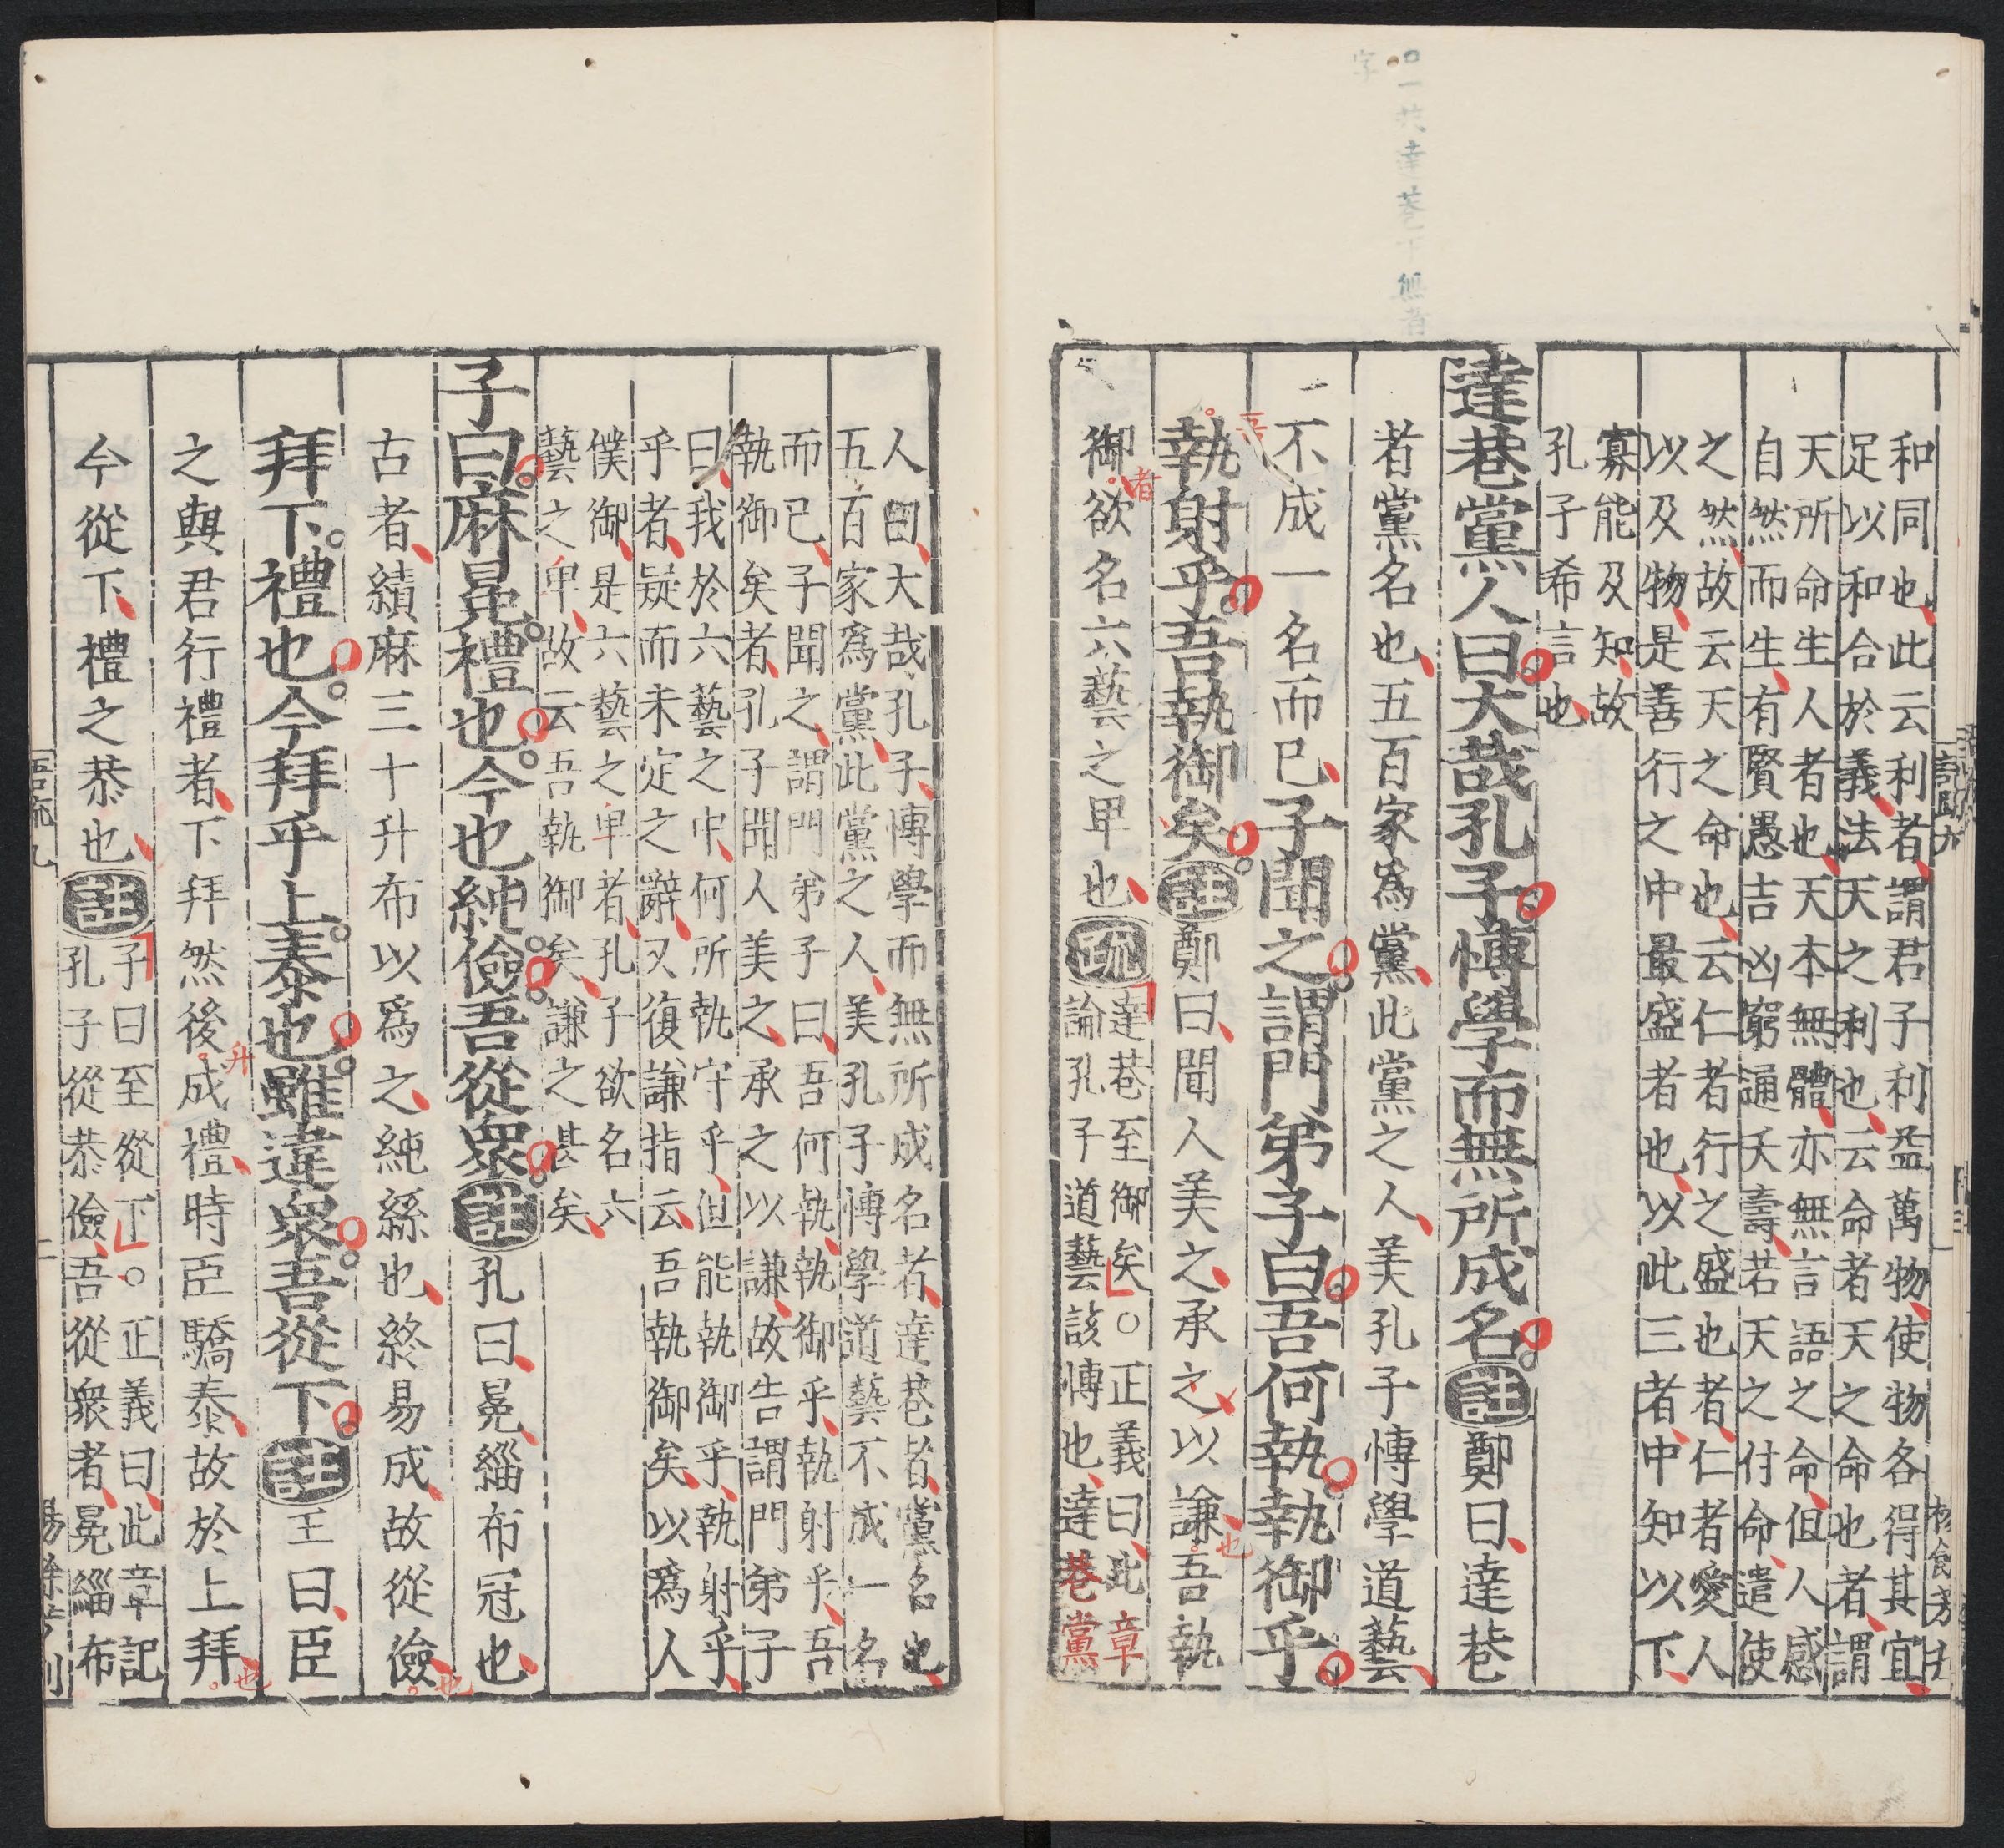 和同也此云利者謂君子利益萬物使物各得其宜
足以和合於義法天之利也云命者天之命也者謂
天所命生人者也天本無體亦無言語之命但人感
自然而生有賢愚吉凶窮通夭壽若天之付命遣使
之然故云天之命也云仁者行之盛也者仁者愛人
以及物是善行之中最盛者也以此三者中知以下
寡能及知故
孔子希言也
達巷黨人曰大哉孔子博學而無所成名註鄭曰達巷
者黨名也五百家爲黨此黨之人美孔子博學道藝
不成一名而已子聞之謂門弟子曰吾何執執御乎
執射乎吾執御矣註鄭曰聞人美之承之以謙吾執
也
御欲名六藝之卑也疏
者
達巷至御矣○正義曰此章
論孔子道藝該博也達巷黨
人曰大哉孔子博學而無所成名者達巷者黨名也
五百家爲黨此黨之人美孔子博學道藝不成一名
而已子聞之謂門弟子曰吾何執執御乎執射乎吾
執御矣者孔子聞人美之承之以謙故告謂門弟子
曰我於六藝之中何所執守乎但能執御乎執射乎
乎者疑而未定之辭又復謙指云吾執御矣以爲人
僕御是六藝之卑者孔子欲名六
藝之卑故云吾執御矣謙之甚矣
子曰麻冕禮也今也純儉吾從衆註孔曰冕緇布冠也
古者績麻三十升布以爲之純絲也終易成故從儉
也
拜下禮也今拜乎上泰也雖違衆吾從下註王曰臣
之與君行禮者下拜然後成禮時臣驕泰故於上拜
升
也
今從下禮之恭也註
子曰至從下○正義曰此章記
孔子從恭儉吾從衆者冕緇布